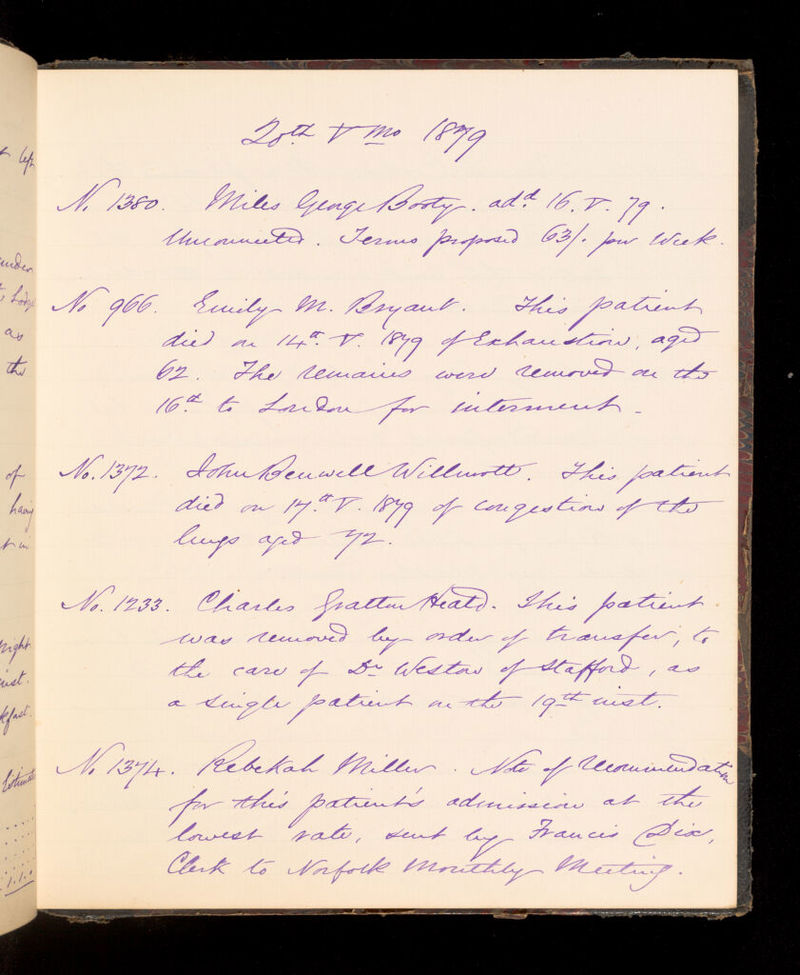 20th V mo 1879
No. 1380. Miles George Booty. add 16. V. 79.
Unconnected. Terms proposed 63/. per Week.
No 966. Emily M. Bryant. This patient
died on 14th. V. 1879 of Exhaustion, aged
62. The remains were removed on the
16th to London for interment.
No. 1372. John Benwell Willmott. This patient
died on 17th. V. 1879 of congestion of the
lungs aged 72.
No. 1233. Charles Gratton Heald. This patient
was removed by order of transfer, to
the care of Dr Weston of Stafford, as
a single patient on the 19th inst.
No. 1374. Rebekah Miller. Note of recommendation
for this patient's admission at the
lowest rate, sent by Francis Dix,
Clerk to Norfolk Monthly Meeting.